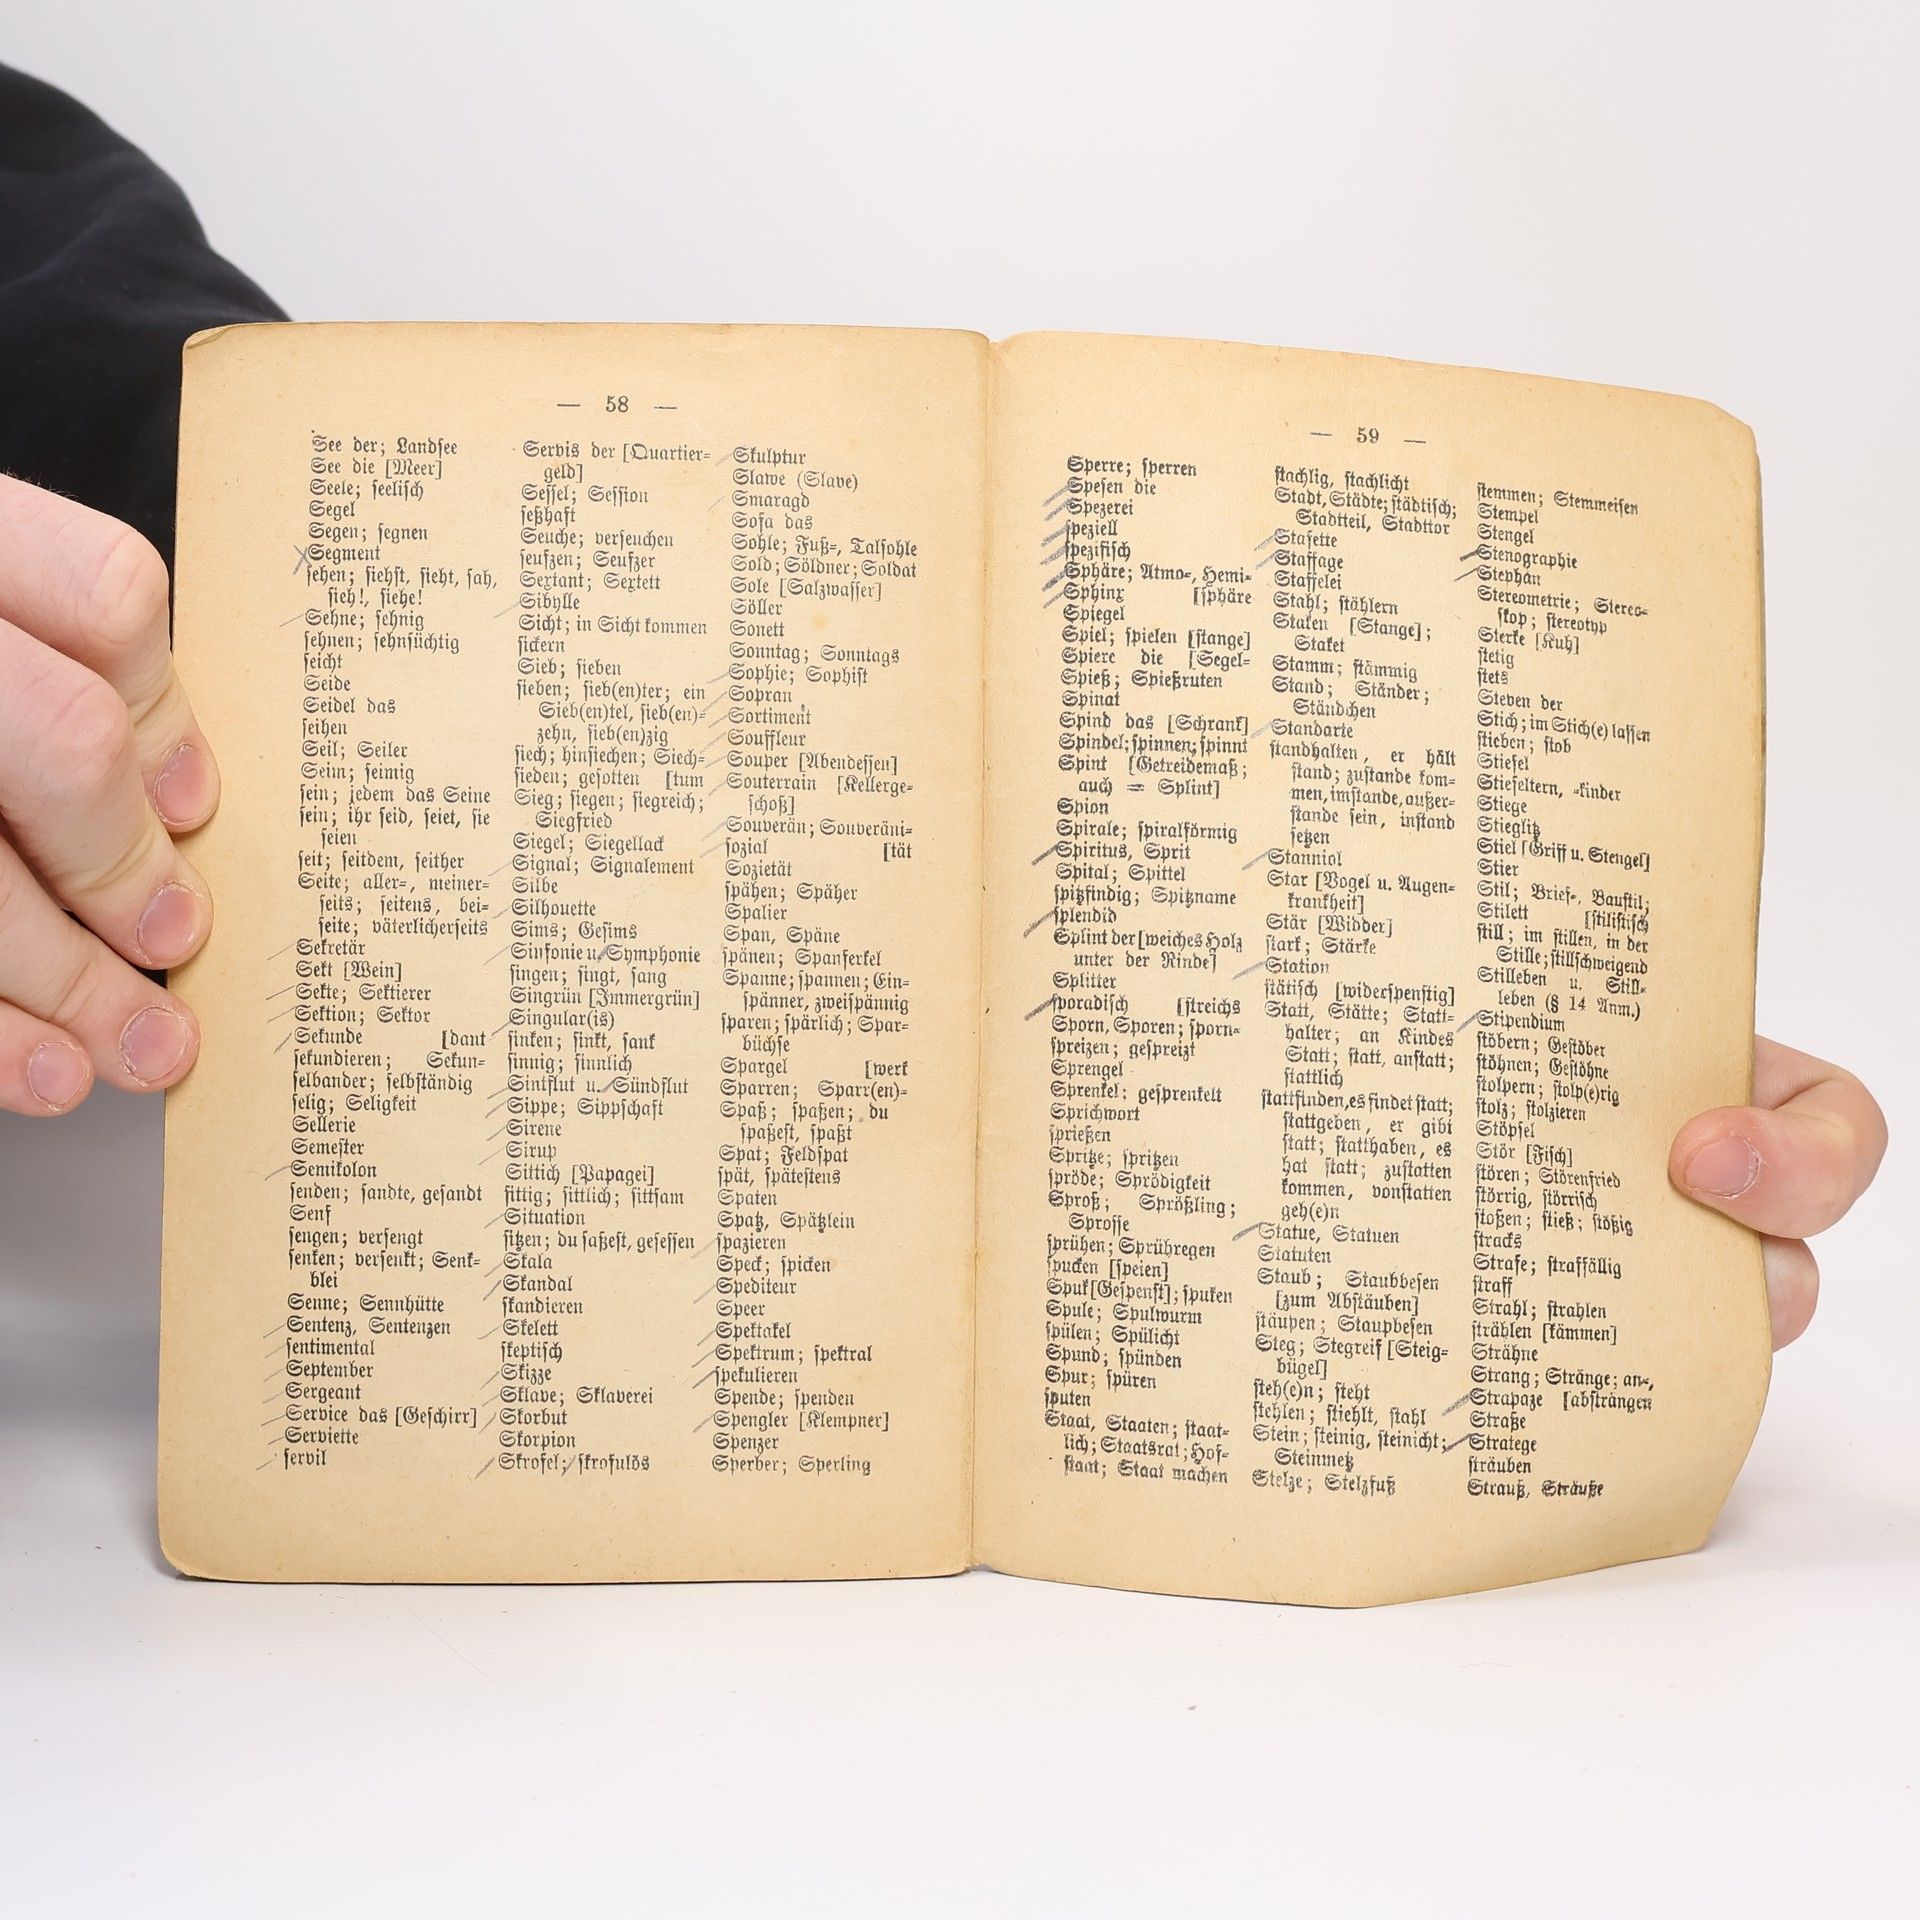 — 58 —
See der; Landsee
See die [Meer]
Seele; seelisch
Segel
Segen; segnen
Segment
sehen; siehst, sieht, sah,
sieh!, siehe!
Sehne; sehnig
sehnen; sehnsüchtig
seicht
Seide
Seidel das
seihen
Seil; Seiler
Seim; seimig
sein; jedem das Seine
sein; ihr seid, seiet, sie
seien
seit; seitdem, seither
Seite; aller-, meiner-
seits; seitens, bei-
seite; väterlicherseits
Sekretär
Sekt [Wein]
Sekte; Sektierer
Sektion; Sektor
Sekunde [dant
sekundieren; Sekun-
selbander; selbständig
selig; Seligkeit
Sellerie
Semester
Semikolon
senden; sandte, gesandt
Senf
sengen; versengt
senken; versenkt; Senk-
blei
Senne; Sennhütte
Sentenz, Sentenzen
sentimental
September
Sergeant
Service das [Geschirr]
Serviette
servil
Servis der [Quartier-
geld]
Sessel; Session
seßhaft
Seuche; verseuchen
seufzen; Seufzer
Sextant; Sextett
Sibylle
Sicht; in Sicht kommen
sickern
Sieb; sieben
sieben; sieb(en)ter; ein
Sieb(en)tel, sieb(en)-
zehn, sieb(en)zig
siech; hinsiechen; Siech-
sieden; gesotten [tum
Sieg; siegen; siegreich;
Siegfried
Siegel; Siegellack
Signal; Signalement
Silbe
Silhouette
Sims; Gesims
Sinfonie u. Symphonie
singen; singt, sang
Singrün [Immergrün]
Singular(is)
sinken; sinkt, sank
sinnig; sinnlich
Sintflut u. Sündflut
Sippe; Sippschaft
Sirene
Sirup
Sittich [Papagei]
sittig; sittlich; sittsam
Situation
sitzen; du saßest, gesessen
Skala
Skandal
skandieren
Skelett
skeptisch
Skizze
Sklave; Sklaverei
Skorbut
Skorpion
Skrofel; skrofulös
Skulptur
Slawe (Slave)
Smaragd
Sofa das
Sohle; Fuß-, Talsohle
Sold; Söldner; Soldat
Sole [Salzwasser]
Söller
Sonett
Sonntag; Sonntags
Sophie; Sophist
Sopran
Sortiment
Souffleur
Souper [Abendessen]
Souterrain [Kellerge-
schoß]
Souverän; Souveräni-
sozial [tät
Sozietät
spähen; Späher
Spalier
Span, Späne
spänen; Spanferkel
Spanne; spannen; Ein-
spänner, zweispännig
sparen; spärlich; Spar-
büchse
Spargel [werk
Sparren; Sparr(en)-
Spaß; spaßen; du
spaßest, spaßt
Spat; Feldspat
spät, spätestens
Spaten
Spatz, Spätzlein
spazieren
Speck; spicken
Spediteur
Speer
Spektakel
Spektrum; spektral
spekulieren
Spende; spenden
Spengler [Klempner]
Spenzer
Sperber; Sperling
— 59 —
Sperre; sperren
Spesen die
Spezerei
speziell
spezifisch
Sphäre; Atmo-, Hemi-
Sphinx [sphäre
Spiegel
Spiel; spielen [stange]
Spiere die [Segel-
Spieß; Spießruten
Spinat
Spind das [Schrank]
Spindel; spinnen; spinnt
Spint [Getreidemaß;
auch = Splint]
Spion
Spirale; spiralförmig
Spiritus, Sprit
Spital; Spittel
spitzfindig; Spitzname
splendid
Splint der [weiches Holz
unter der Rinde]
Splitter
sporadisch [streichs
Sporn, Sporen; sporn-
spreizen; gespreizt
Sprengel
Sprenkel; gesprenkelt
Sprichwort
sprießen
Spritze; spritzen
spröde; Sprödigkeit
Sproß; Sprößling;
Sprosse
sprühen; Sprühregen
spucken [speien]
Spuk [Gespenst]; spuken
Spule; Spulwurm
spülen; Spülicht
Spund; spünden
Spur; spüren
sputen
Staat, Staaten; staat-
lich; Staatsrat; Hof-
staat; Staat machen
stachlig, stachlicht
Stadt, Städte; städtisch;
Stadtteil, Stadttor
Stafette
Staffage
Staffelei
Stahl; stählern
Staken [Stange];
Staket
Stamm; stämmig
Stand; Ständer;
Ständchen
Standarte
standhalten, er hält
stand; zustande kom-
men, imstande, außer-
stande sein, instand
setzen
Stanniol
Star [Vogel u. Augen-
krankheit]
Stär [Widder]
stark; Stärke
Station
stätisch [widerspenstig]
Statt, Stätte; Statt-
halter; an Kindes
Statt; statt, anstatt;
stattlich
stattfinden, es findet statt;
stattgeben, er gibt
statt; statthaben, es
hat statt; zustatten
kommen, vonstatten
geh(e)n
Statue, Statuen
Statuten
Staub; Staubbesen
[zum Abstäuben]
stäupen; Staupbesen
Steg; Stegreif [Steig-
bügel]
steh(e)n; steht
stehlen; stiehlt, stahl
Stein; steinig, steinicht;
Steinmetz
Stelze; Stelzfuß
stemmen; Stemmeisen
Stempel
Stengel
Stenographie
Stephan
Stereometrie; Stereo-
skop; stereotyp
Sterke [Kuh]
stetig
stets
Steven der
Stich; im Stich(e) lassen
stieben; stob
Stiefel
Stiefeltern, -kinder
Stiege
Stieglitz
Stiel [Griff u. Stengel]
Stier
Stil; Brief-, Baustil;
Stilett [stilistisch
still; im stillen, in der
Stille; stillschweigend
Stilleben u. Still-
leben (§ 14 Anm.)
Stipendium
stöbern; Gestöber
stöhnen; Gestöhne
stolpern; stolp(e)rig
stolz; stolzieren
Stöpsel
Stör [Fisch]
stören; Störenfried
störrig, störrisch
stoßen; stieß; stößig
stracks
Strafe; straffällig
straff
Strahl; strahlen
strählen [kämmen]
Strähne
Strang; Stränge; an-,
Strapaze [absträngen
Straße
Stratege
sträuben
Strauß, Sträuße